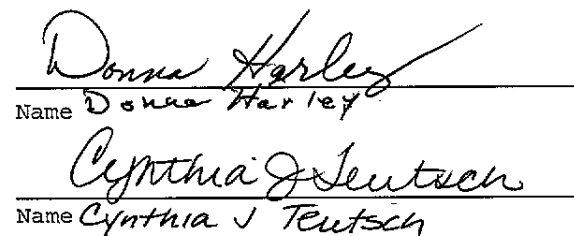 Donna Harley
Name Donna Harley
Cynthia J Teutsch
Name Cynthia J Teutsch